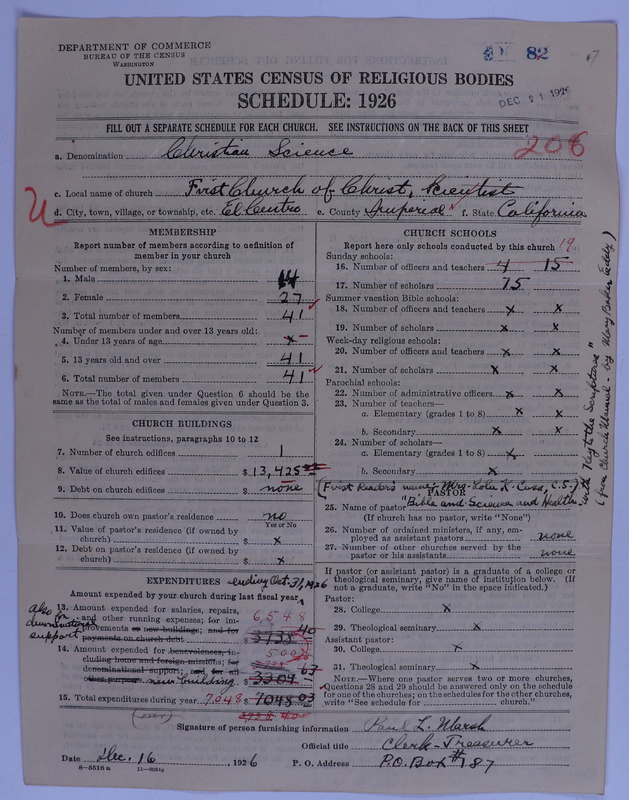 DEPARTMENT OF COMMERCE
BUREAU OF THE CENSUS
WASHINGTON
82
UNITED STATES CENSUS OF RELIGIOUS BODIES
SCHEDULE: 1926
DEC 21 1926
FILL OUT A SEPARATE SCHEDULE FOR EACH CHURCH. SEE INSTRUCTIONS ON THE BACK OF THIS SHEET
206
a. Denomination Christian Science
c. Local name of church First Church of Christ, Scientist
d. City, town, village, or township, etc. El Centro e. County Imperial f. State California
MEMBERSHIP
Report number of members according to definition of
member in your church
Number of members, by sex:
1. Male 14
2. Female 27
3. Total number of members 41
Number of members under and over 13 years old:
4. Under 13 years of age x
5. 13 years old and over 41
6. Total number of members 41
NOTE.—The total given under Question 6 should be the
same as the total of males and females given under Question 3.
CHURCH BUILDINGS
See instructions, paragraphs 10 to 12
7. Number of church edifices 1
8. Value of church edifices $ 13,425
9. Debt on church edifices $ none
10. Does church own pastor's residence no
Yes or No
11. Value of pastor's residence (if owned by
church) $ x
12. Debt on pastor's residence (if owned by
church) $ x
EXPENDITURES ending Oct. 31, 1926
Amount expended by your church during last fiscal year
13. Amount expended for salaries, repairs,
and other running expenses; for im-
provements or new buildings; and for
payments on church debt $ 3738 40
6,548
Also for denominational support
14. Amount expended for benevolences, in-
cluding home and foreign missions; for
denominational support; and for all
other purposes new building $ 3309 63
500
15. Total expenditures during year 7,048 $ 7048 03
CHURCH SCHOOLS
Report here only schools conducted by this church 19
Sunday schools:
16. Number of officers and teachers 4 15
17. Number of scholars 75
Summer vacation Bible schools:
18. Number of officers and teachers x x
19. Number of scholars x x
Week-day religious schools:
20. Number of officers and teachers x x
21. Number of scholars x x
Parochial schools:
22. Number of administrative officers x x
23. Number of teachers—
a. Elementary (grades 1 to 8) x x
b. Secondary x x
24. Number of scholars—
a. Elementary (grades 1 to 8) x
b. Secondary x
(First Reader's name: Mrs. Lola K. Cuss, C.S.)
PASTOR
25. Name of pastor "Bible and Science and Health
with Key to the Scriptures"
(from Church Manual - by Mary Baker Eddy)
(If church has no pastor, write "None")
26. Number of ordained ministers, if any, em-
ployed as assistant pastors none
27. Number of other churches served by the
pastor or his assistants none
If pastor (or assistant pastor) is a graduate of a college or
theological seminary, give name of institution below. (If
not a graduate, write "No" in the space indicated.)
Pastor:
28. College x
29. Theological seminary x
Assistant pastor:
30. College x
31. Theological seminary x
NOTE.—Where one pastor serves two or more churches,
Questions 28 and 29 should be answered only on the schedule
for one of the churches; on the schedules for the other churches,
write "See schedule for church."
Signature of person furnishing information Paul L. Marsh
Official title Clerk-Treasurer
Date Dec. 16, 1926 P. O. Address P.O. Box #187